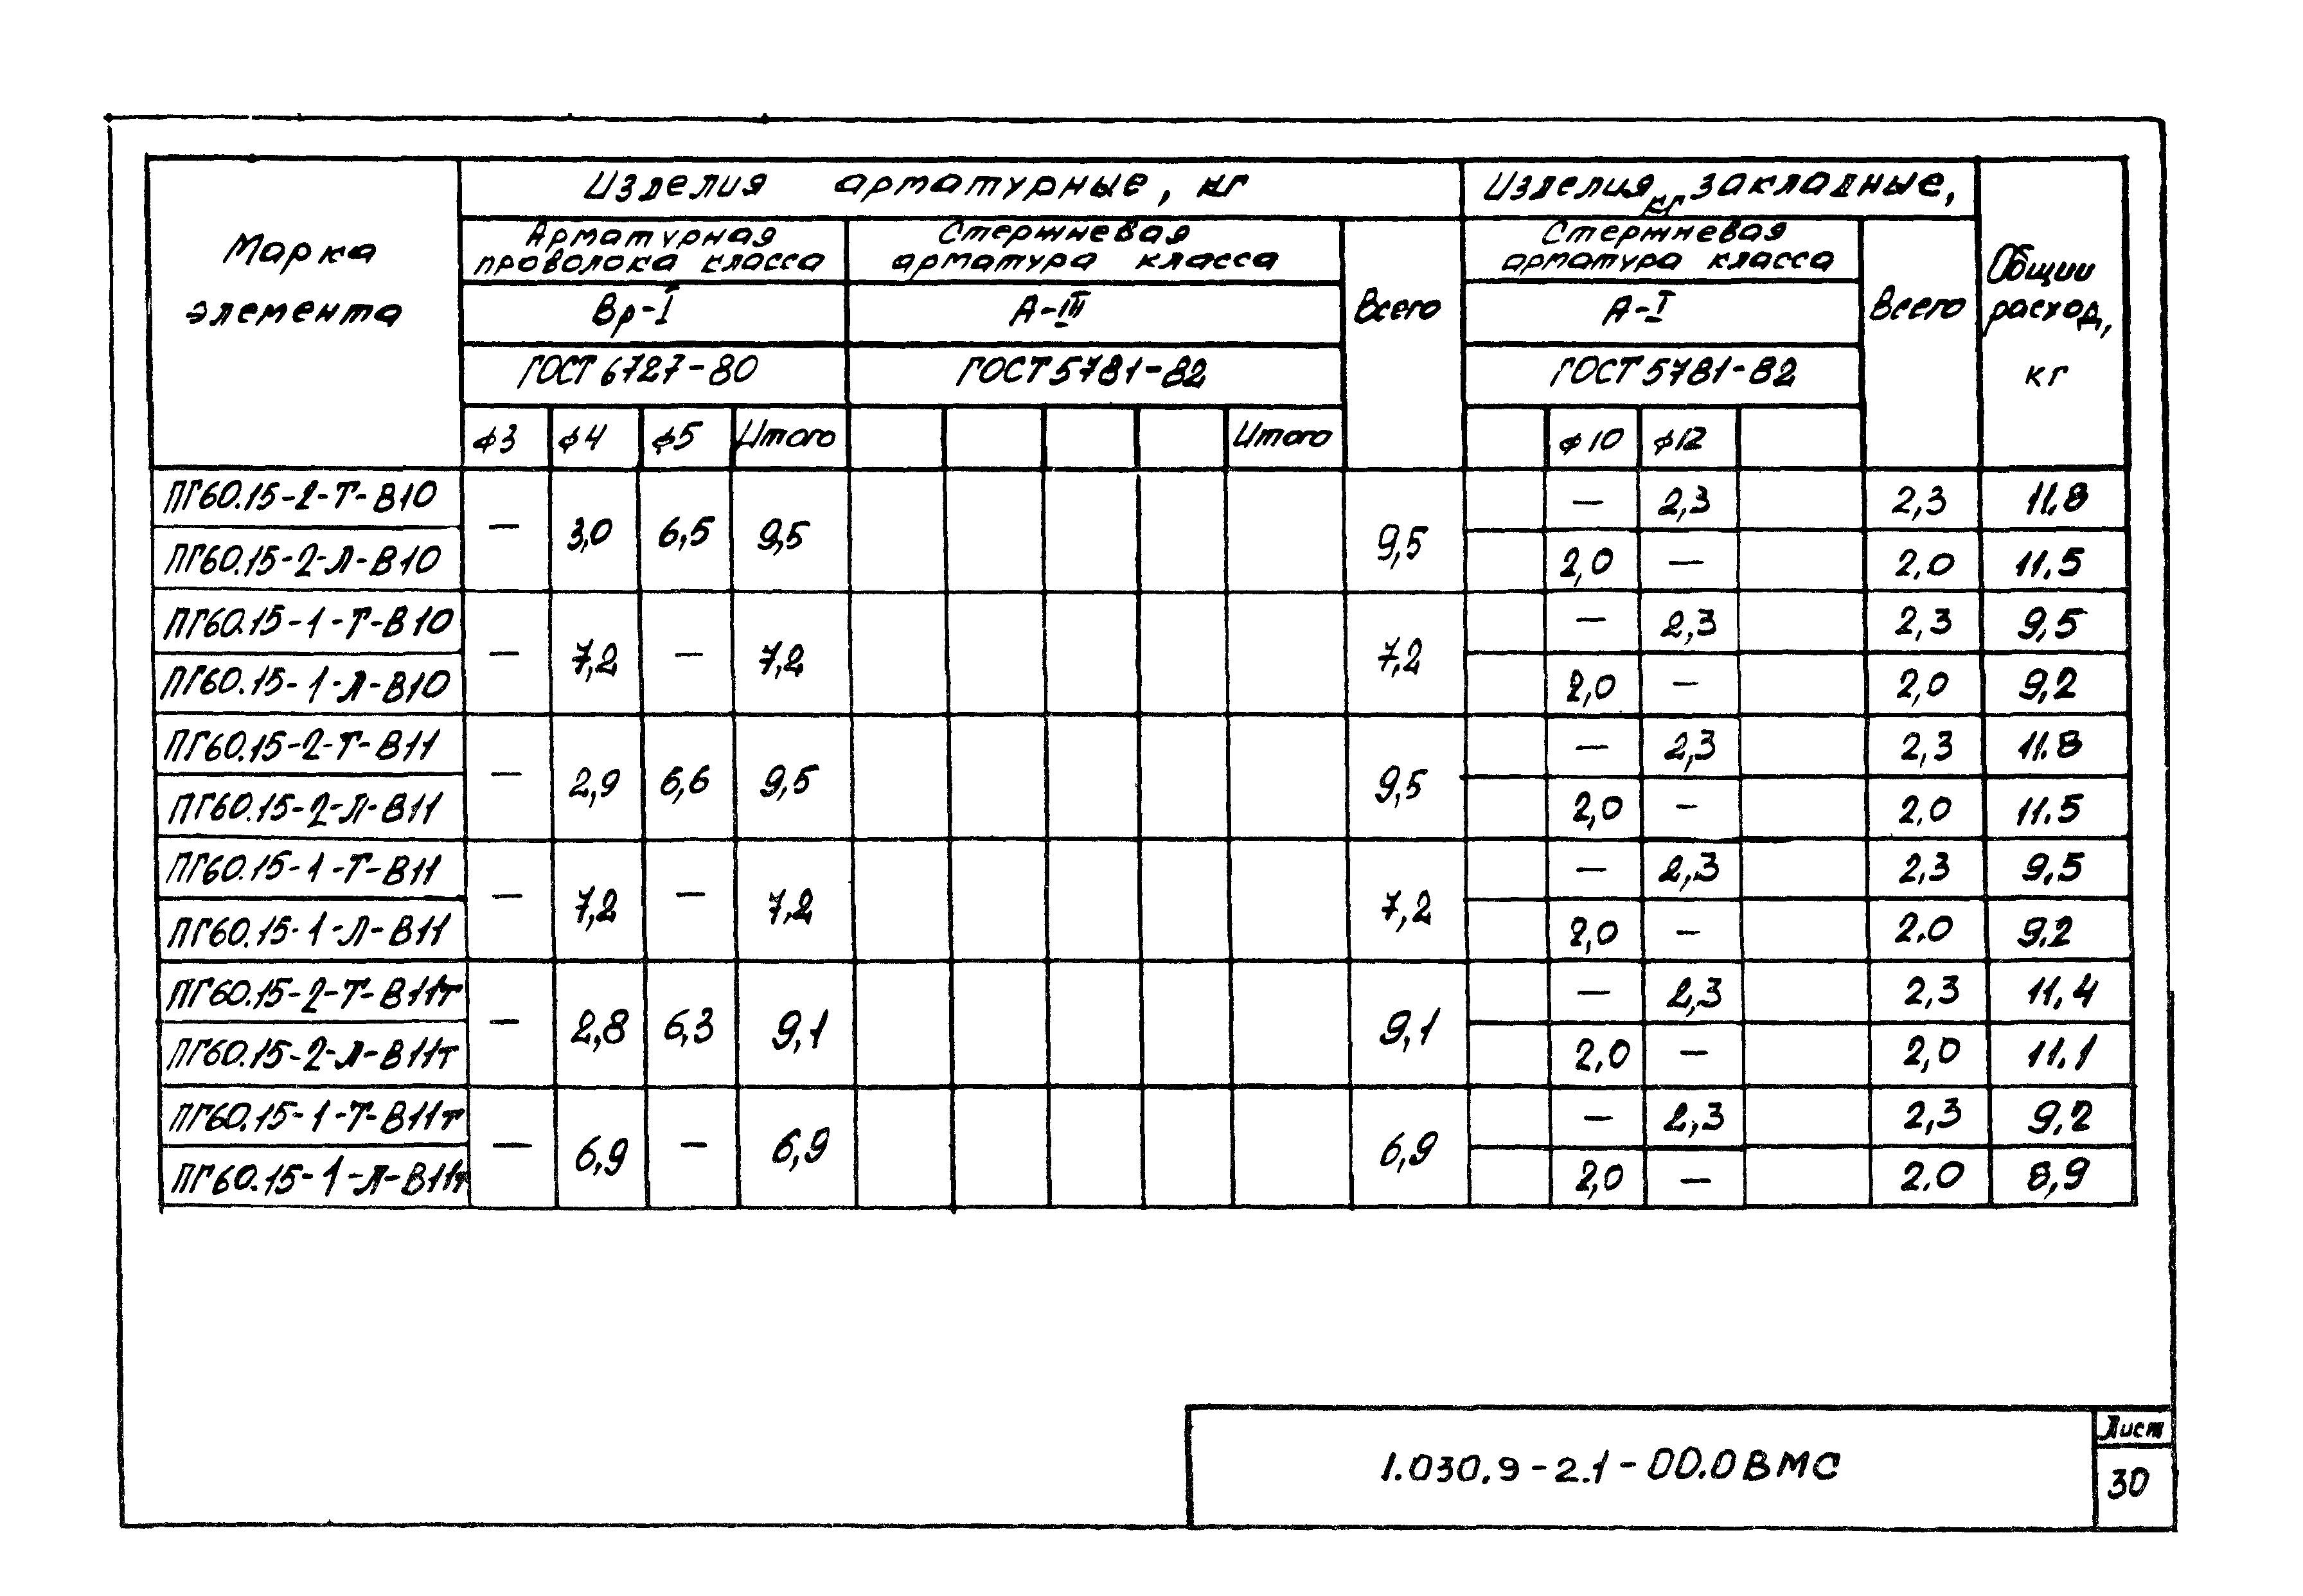 Марка
элемента
Изделия арматурные, кг
Изделия закладные,
кг
Арматурная
проволока класса
Стержневая
арматура класса
Всего
Стержневая
арматура класса
Всего
Общий
расход,
кг
Вр-I
А-III
А-I
ГОСТ 6727-80
ГОСТ 5781-82
ГОСТ 5781-82
ф3 ф4 ф5 Итого Итого ф10 ф12
ПГ60.15-2-Т-В10 — 3,0 6,5 9,5 9,5 — 2,3 2,3 11.8
ПГ60.15-2-Л-В10 2,0 — 2,0 11.5
ПГ60.15-1-Т-В10 — 7,2 — 7,2 7,2 — 2,3 2,3 9,5
ПГ60.15-1-Л-В10 2,0 — 2,0 9,2
ПГ60.15-2-Т-В11 — 2,9 6,6 9,5 9,5 — 2,3 2,3 11.8
ПГ60.15-2-Л-В11 2,0 — 2,0 11.5
ПГ60.15-1-Т-В11 — 7,2 — 7,2 7,2 — 2,3 2,3 9,5
ПГ60.15-1-Л-В11 2,0 — 2.0 9.2
ПГ60.15-2-Т-В11т — 2,8 6,3 9,1 9,1 — 2,3 2,3 11,4
ПГ60.15-2-Л-В11т 2,0 — 2,0 11.1
ПГ60.15-1-Т-В11т — 6,9 — 6,9 6,9 — 2,3 2,3 9,2
ПГ60.15-1-Л-В11т 2,0 — 2.0 8,9
1.030.9-2.1-00.0ВМС
Лист
30